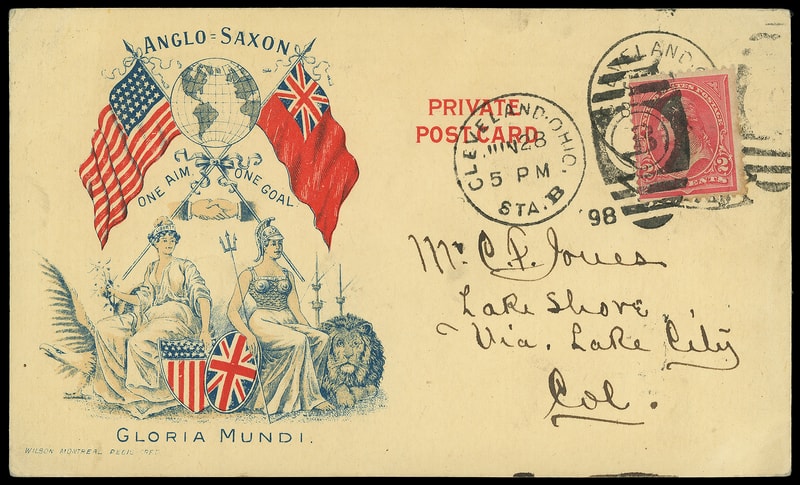 ANGLO=SAXON
ONE AIM. ONE GOAL.
GLORIA MUNDI.
WILSON MONTREAL
PRIVATE
POSTCARD
CLEVELAND·OHIO.
JUN 28
5 PM
STA. B
98
ELAND
STATES POSTAGE
2 CENTS 2
Mr. C. F. Jones
Lake Shore.
Via. Lake City
Col.